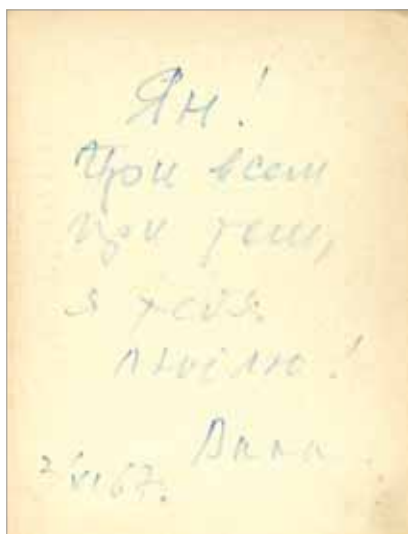 Ян!
При всем
при том,
я тебя
люблю!
Анна.
2/VI 67.